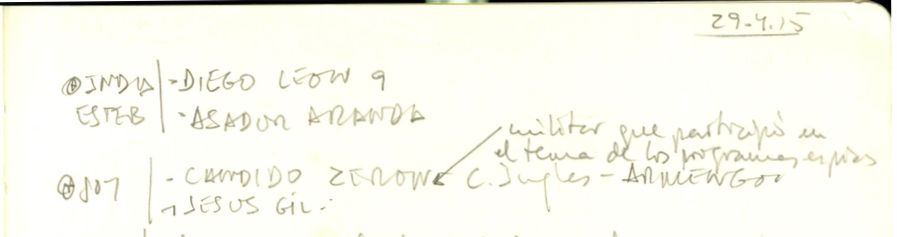 29-4-15
- DIEGO LEON 9
ESTEB - ASADOR ARANDA
militar que participó en
el tema de los programas espias
@807 - CANDIDO ZERON C. Ingles - ARMENGOL
JESUS GIL.